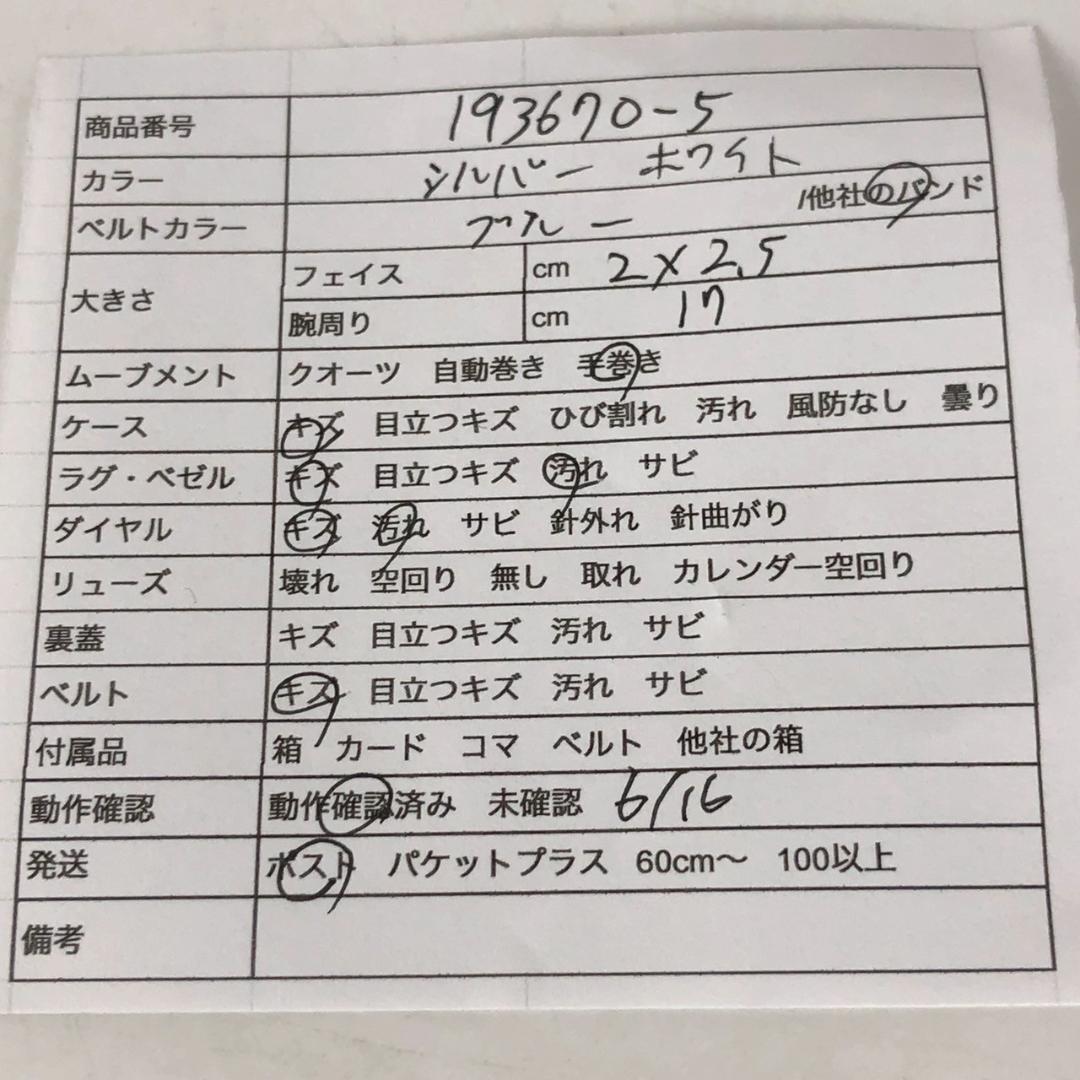 商品番号 193670-5
カラー シルバー ホワイト
ベルトカラー ブルー /他社のバンド
大きさ フェイス cm 2×2.5
腕周り cm 17
ムーブメント クオーツ 自動巻き 手巻き
ケース キズ 目立つキズ ひび割れ 汚れ 風防なし 曇り
ラグ・ベゼル キズ 目立つキズ 汚れ サビ
ダイヤル キズ 汚れ サビ 針外れ 針曲がり
リューズ 壊れ 空回り 無し 取れ カレンダー空回り
裏蓋 キズ 目立つキズ 汚れ サビ
ベルト キズ 目立つキズ 汚れ サビ
付属品 箱 カード コマ ベルト 他社の箱
動作確認 動作確認済み 未確認 6/16
発送 ポスト パケットプラス 60cm〜 100以上
備考